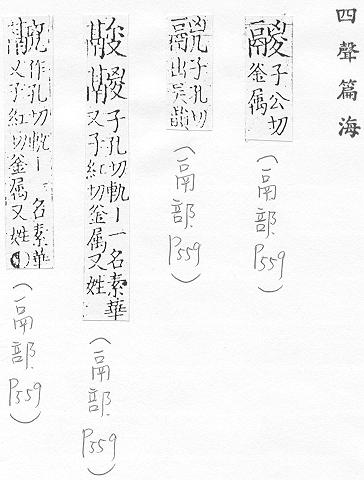 四聲篇海
鬷 子公切
釜属
(鬲部 P559)
子孔切
出吴
(鬲部 P559)
子孔切軌丨一名素華
又子紅切釜属又姓
(鬲部 P559)
作孔切軌丨一名素華
又子紅切釜属又姓
(鬲部 P559)